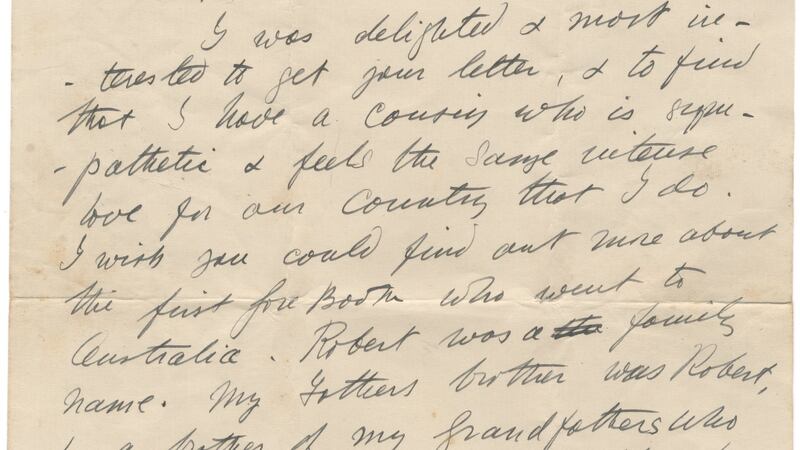 I was delighted & most in-
-terested to get your letter, & to find
that I have a cousin who is sym-
-pathetic & feels the same intense
love for our Country that I do.
I wish you could find out more about
the first Gore Booth who went to
Australia. Robert was a the family
name. My Fathers brother was Robert,
& a brother of my Grandfathers who